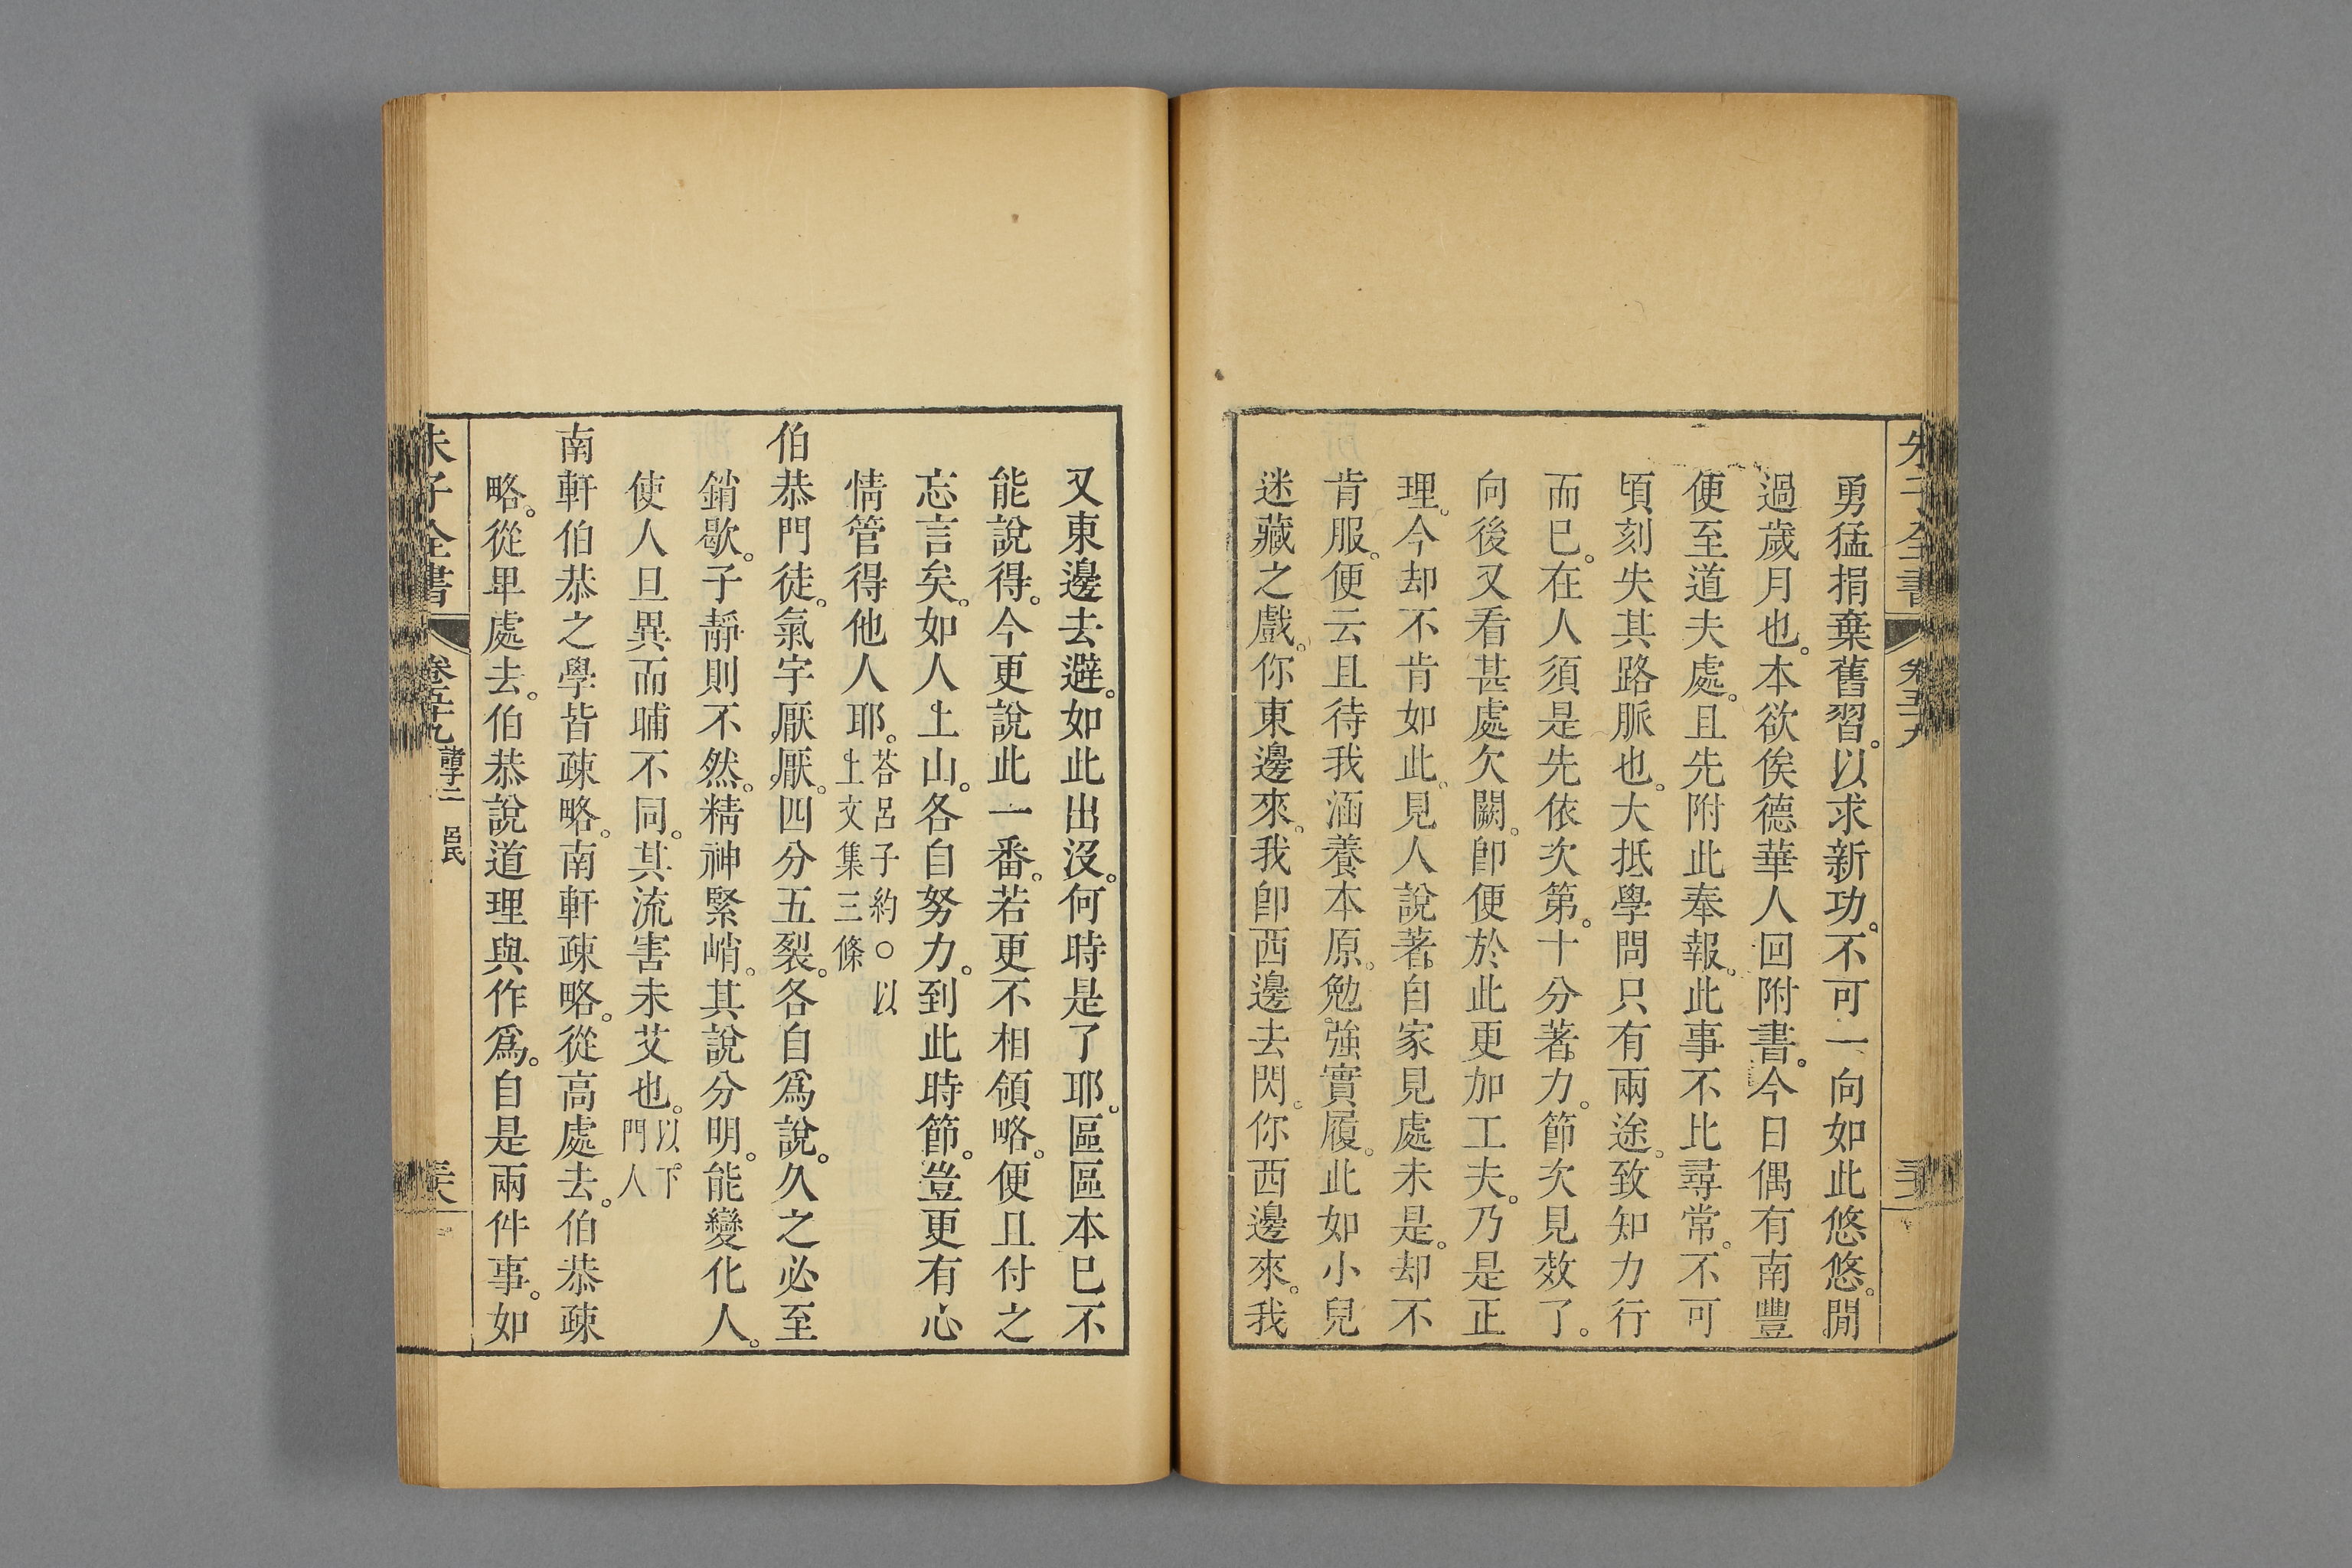 朱子全書 卷五十九
勇猛捐棄舊習。以求新功。不可一向如此悠悠。閒
過歲月也。本欲俟德華人回附書。今日偶有南豐
便至道夫處。且先附此奉報。此事不比尋常。不可
頃刻失其路脈也。大抵學問只有兩途。致知力行
而已。在人須是先依次第。十分著力。節次見效了。
向後又看甚處欠闕。卽便於此更加工夫。乃是正
理。今却不肯如此。見人說著。自家見處未是。却不
肯服。便云且待我涵養本原。勉強實履。此如小兒
迷藏之戲。你東邊來。我卽西邊去閃。你西邊來。我
又東邊去避。如此出沒。何時是了耶。區區本已不
能說得。今更說此一番。若更不相領略。便且付之
忘言矣。如人上山。各自努力。到此時節。豈更有心
情管得他人耶。荅呂子約○以
上文集三條
伯恭門徒。氣宇厭厭。四分五裂。各自爲說。久之必至
銷歇。子靜則不然。精神緊峭。其說分明。能變化人。
使人旦異而晡不同。其流害未艾也。以下
門人
南軒伯恭之學皆疎略。南軒疎略。從高處去。伯恭疎
略。從卑處去。伯恭說道理與作爲。自是兩件事。如
朱子全書 卷五十九 諸子二 呂氏